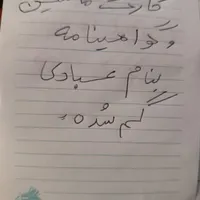 کارت ماشین
و گواهینامه
بنام عبادی
گم شده.